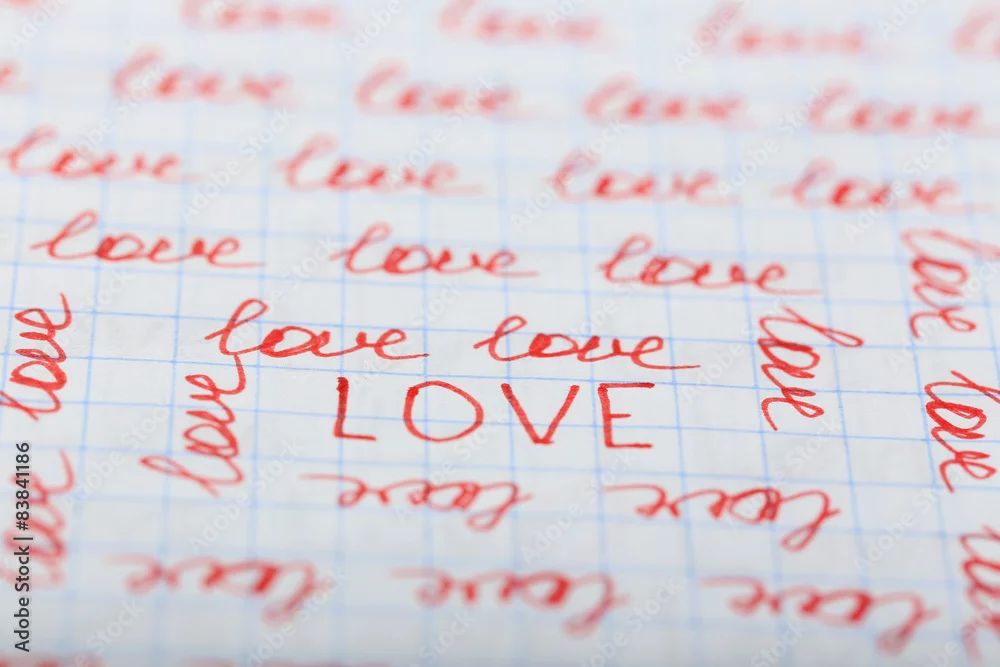 love love love
love love love love
love love love love
love love love
love love love love
love love LOVE love love
love love
love love love
love
Adobe Stock | #83841186